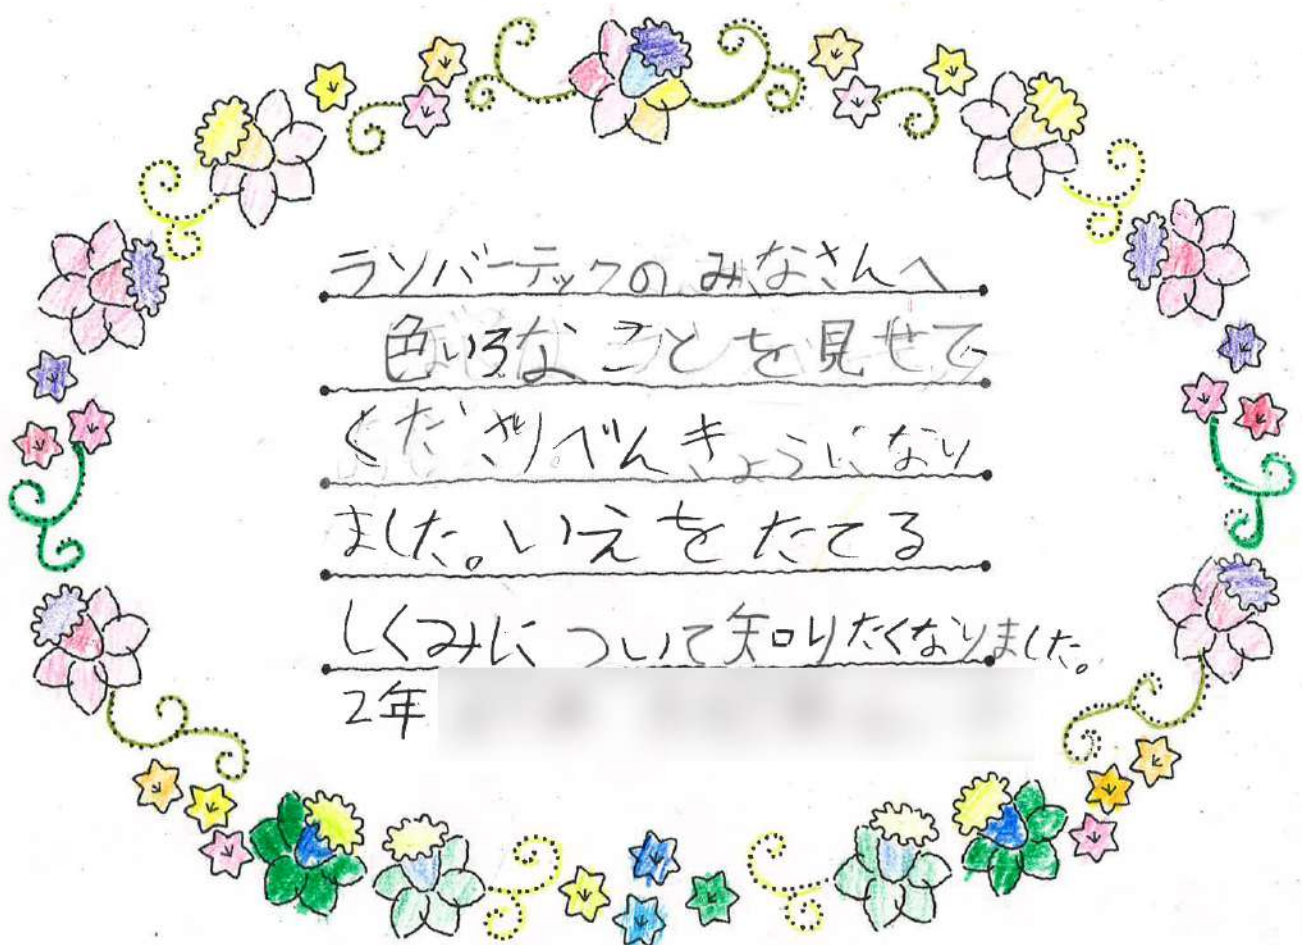 ランバーテックのみなさんへ
色いろなことを見せて
くださりべんきょうになり
ました。いえをたてる
しくみについて知りたくなりました。
2年